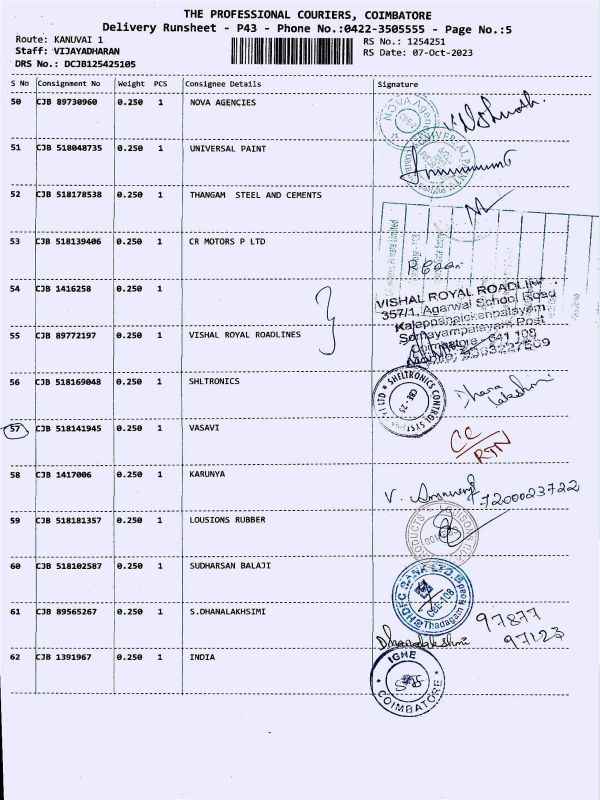 THE PROFESSIONAL COURIERS, COIMBATORE
Delivery Runsheet - P43 - Phone No.:0422-3505555 - Page No.:5
Route: KANUVAI 1
RS No.: 1254251
Staff: VIJAYADHARAN
RS Date: 07-Oct-2023
DRS No.: DCJB125425105
S No Consignment No Weight PCS Consignee Details Signature
50 CJB 89730960 0.250 1 NOVA AGENCIES
51 CJB 518048735 0.250 1 UNIVERSAL PAINT
52 CJB 518178538 0.250 1 THANGAM STEEL AND CEMENTS
53 CJB 518139406 0.250 1 CR MOTORS P LTD
54 CJB 1416258 0.250 1
VISHAL ROYAL ROADLINE
357/1, Agarwal School Road
Kalappanaickenpalayam
Somayampalayam Post
Coimbatore - 641 108
55 CJB 89772197 0.250 1 VISHAL ROYAL ROADLINES
56 CJB 518169048 0.250 1 SHLTRONICS
SHELTRONICS CONTROL SYSTEMS
CBE - 25
Dhana
lakshmi
57 CJB 518141945 0.250 1 VASAVI
CC/
RTN
58 CJB 1417006 0.250 1 KARUNYA
7200023722
59 CJB 518181357 0.250 1 LOUSIONS RUBBER
60 CJB 518102587 0.250 1 SUDHARSAN BALAJI
HDFC BANK LTD
Thadagam Road
61 CJB 89565267 0.250 1 S.DHANALAKHSIMI
Dhanalakshmi
97877
97123
62 CJB 1391967 0.250 1 INDIA
IGHE
COIMBATORE